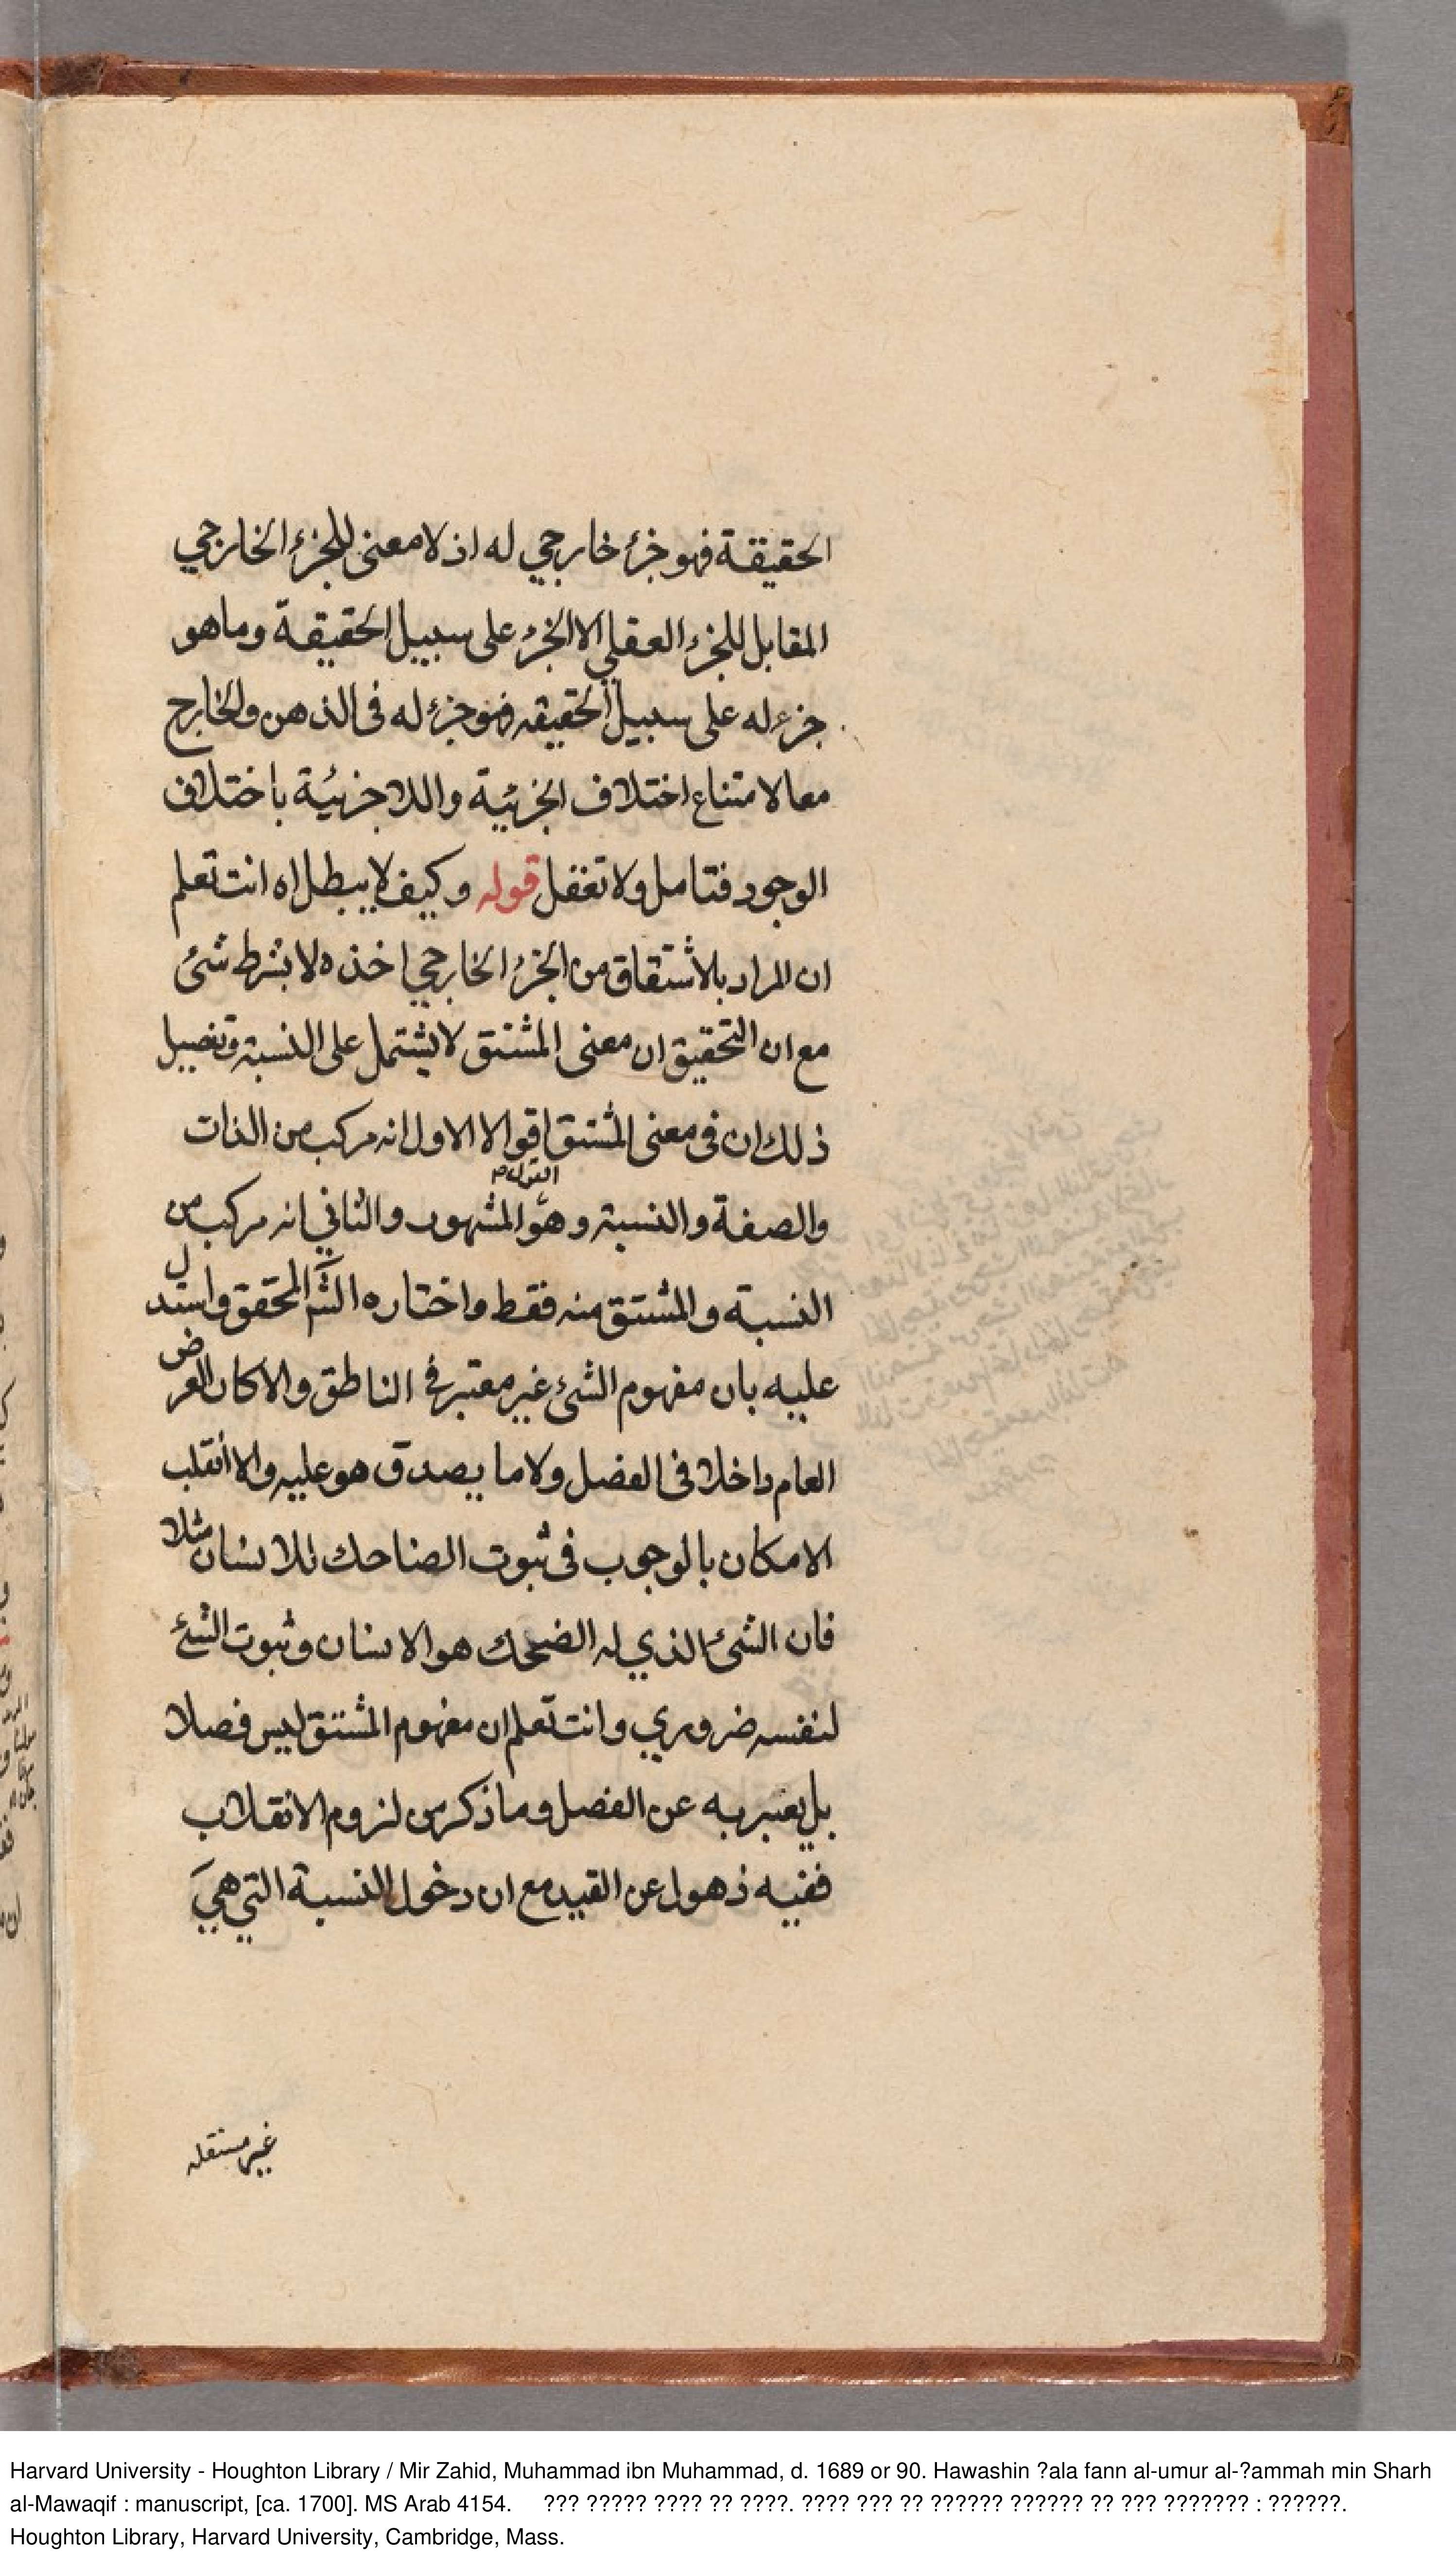 الحقيقة فهو جزء خارجي له اذ لا معنى للجزء الخارجي
المقابل للجزء العقلي الا الجزء على سبيل الحقيقة وما هو
جزء له على سبيل الحقيقه فهو جزء له فى الذهن والخارج
معا لامتناع اختلاف الجزئية واللاجزئية باختلاف
الوجود فتامل ولا تغفل قوله وكيف لا يبطل اه انت تعلم
ان المراد بالاشتقاق من الجزء الخارجي اخذه لا بشرط شئ
مع ان التحقيق ان معنى المشتق لا يشتمل على النسبة وتفصيل
ذلك ان فى معنى المشتق اقوالا الاول انه مركب من الذات
القول
والصفة والنسبة وهو المشهور والثاني انه مركب من
النسبة والمشتق منه فقط واختاره الشم المحقق واستدل
عليه بان مفهوم الشئ غير معتبر في الناطق والا كان العرض
العام داخلا فى الفصل ولا ما يصدق هو عليه والا انقلب
الامكان بالوجوب فى ثبوت الضاحك للانسان مثلا
فان الشئ الذي له الضحك هو الانسان وثبوت الشئ
لنفسه ضروري وانت تعلم ان مفهوم المشتق ليس فصلا
بل يعبر به عن الفصل وما ذكر من لزوم الانقلاب
ففيه ذهول عن القيد مع ان دخول النسبة التي هي
غير مستقله
Harvard University - Houghton Library / Mir Zahid, Muhammad ibn Muhammad, d. 1689 or 90. Hawashin ?ala fann al-umur al-?ammah min Sharh
al-Mawaqif : manuscript, [ca. 1700]. MS Arab 4154. ??? ????? ???? ?? ????. ???? ??? ?? ?????? ?????? ?? ??? ??????? : ??????.
Houghton Library, Harvard University, Cambridge, Mass.